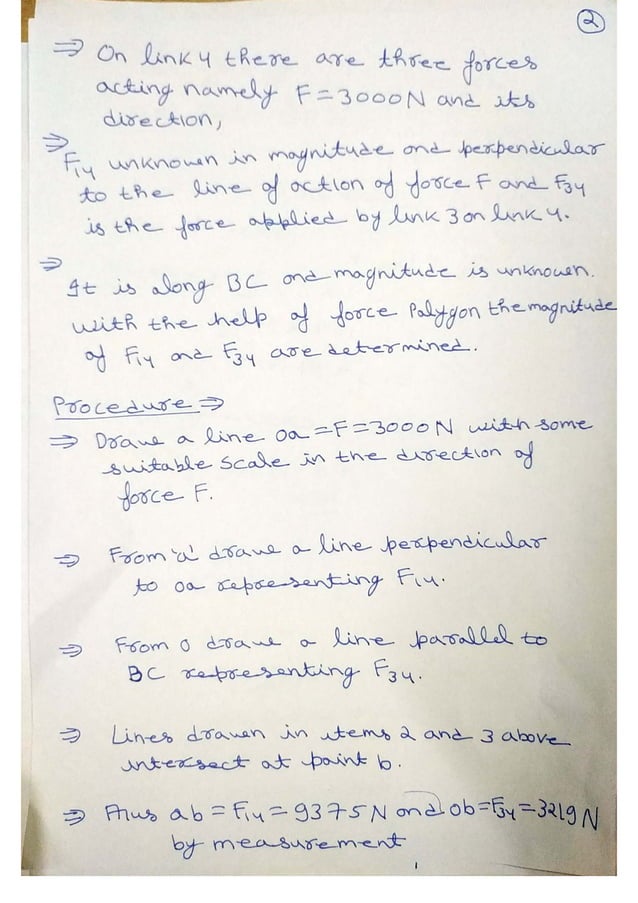 2
⇒ On link 4 there are three forces
acting namely F = 3000N and its
direction,
⇒
F14 unknowen in magnitude and perpendicular
to the line of action of force F and F34
is the force applied by link 3 on link 4.
⇒
It is along BC and magnitude is unknowen.
with the help of force Polygon the magnitude
of F14 and F34 are determined.
Procedure ⇒
⇒ Drawe a line oa = F = 3000N with some
suitable scale in the direction of
force F.
⇒ From 'a' drawe a line perpendicular
to oa representing F14.
⇒ From o drawe a line parallel to
BC representing F34.
⇒ Lines drawen in items 2 and 3 above
intersect at point b.
⇒ Thus ab = F14 = 9375 N and ob = F34 = 3219 N
by measurement